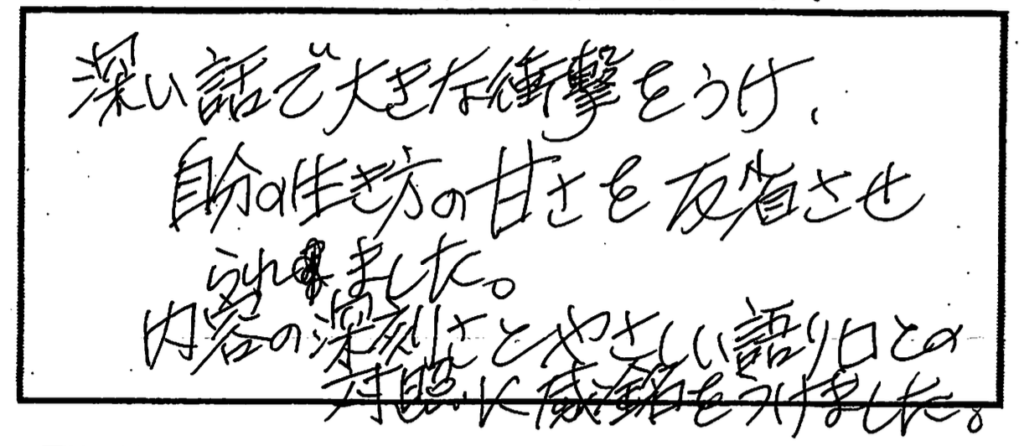 深い話で大きな衝撃をうけ、
自分の生き方の甘さを反省させ
られました。
内容の深刻さとやさしい語り口との
対照に感銘をうけました。